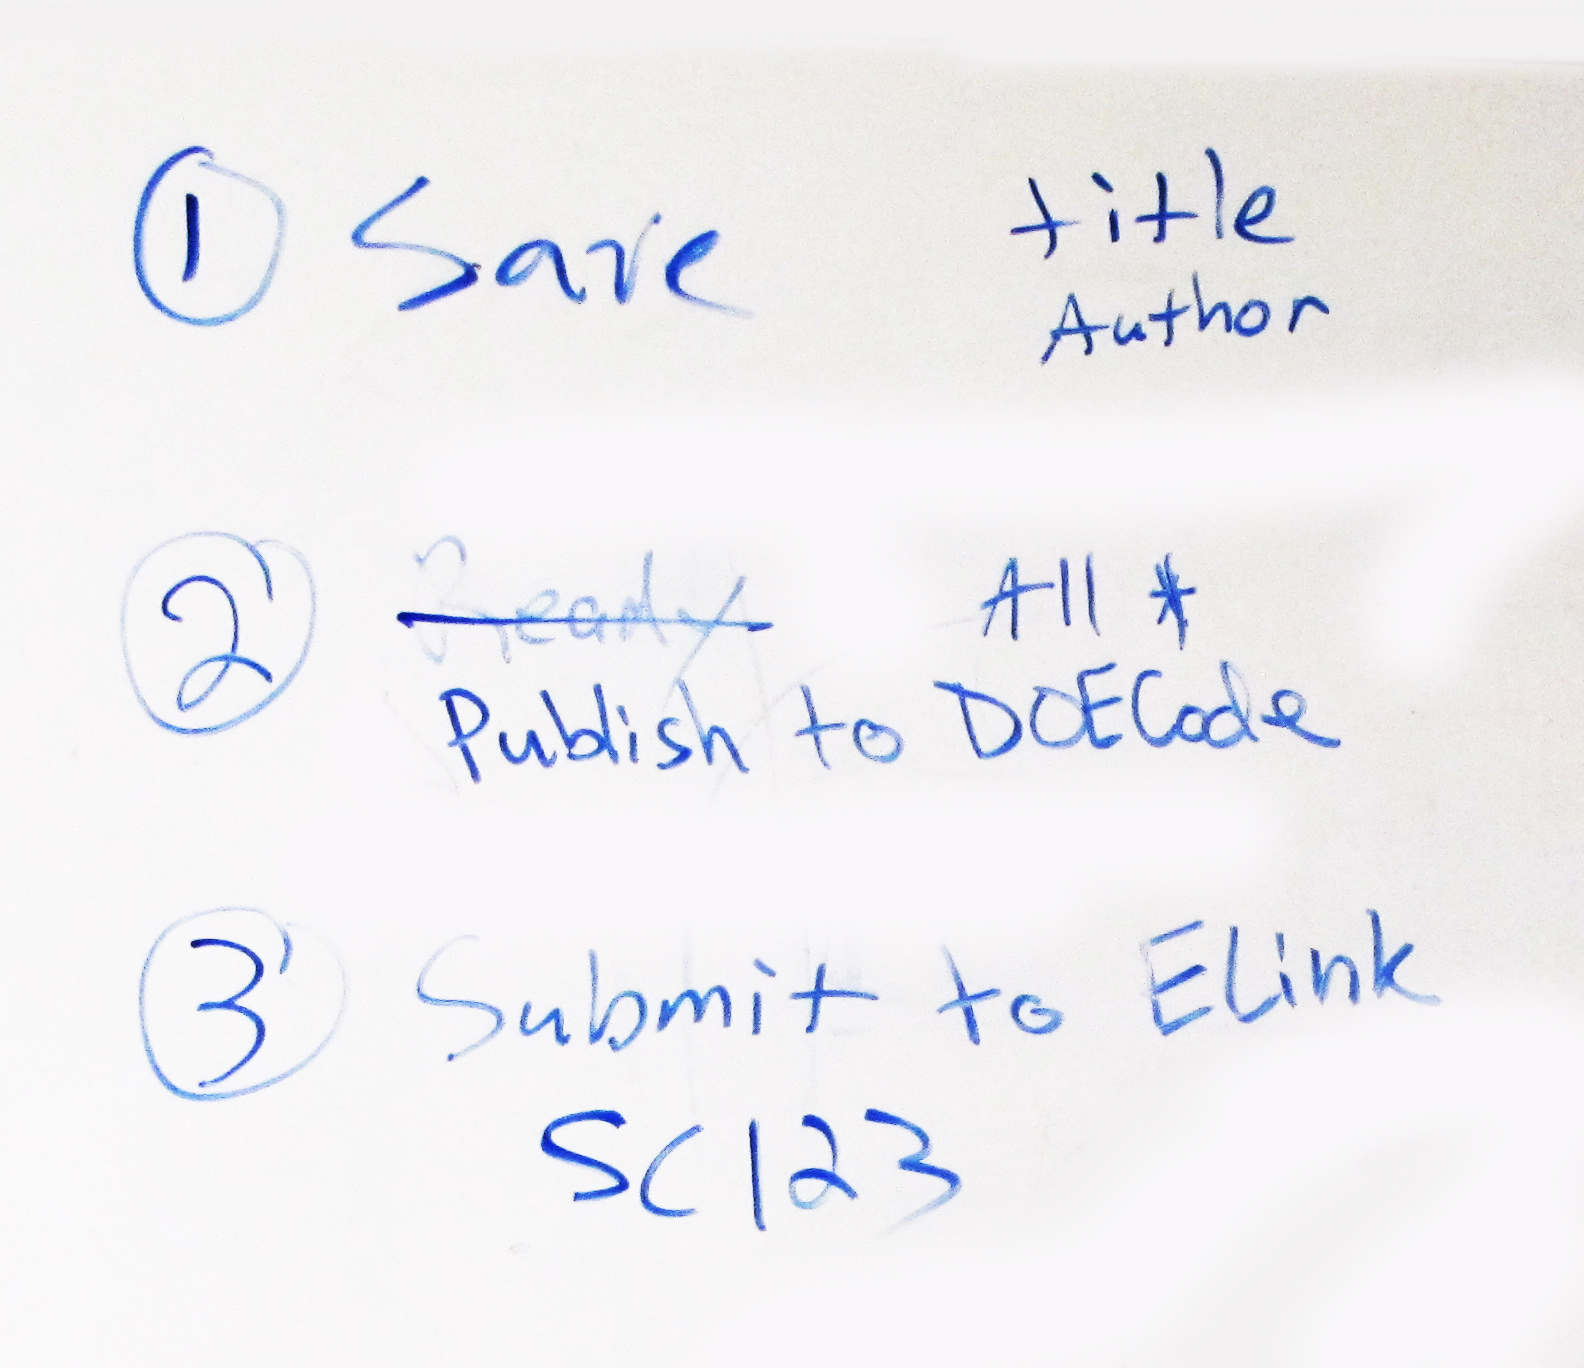 1 Save title
Author
2 Ready All *
Publish to DOECode
3 Submit to ELink
SC123